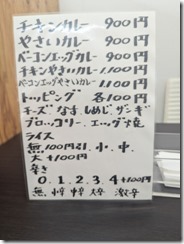 チキンカレー 900円
やさいカレー 900円
ベーコンエッグカレー 900円
チキンやさいカレー 1,100円
ベーコンエッグやさいカレー 1,100円
トッピング 各100円
チーズ なす、しめじ、ザンギ
ブロッコリー、エッグ焼
ライス
無100円引、小、中、
大+100円
辛さ
0、1、2、3、4+100円
無 激辛